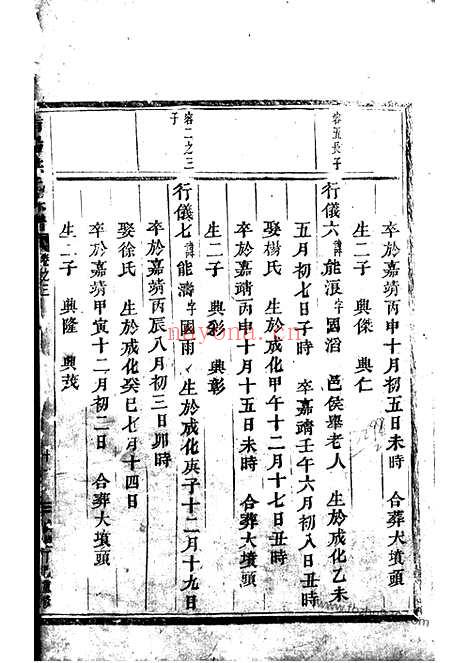 卒於嘉靖丙申十月初五日未時 合葬大墳頭
生二子 興傑 興仁
容五長子
行儀六諱能浪字國滔 邑侯舉老人 生於成化乙未
五月初七日子時 卒嘉靖壬午六月初八日丑時
娶楊氏 生於成化甲午十二月十七日丑時
卒於嘉靖丙申十月十五日未時 合葬大墳頭
生二子 興彩 興彰
容二之三子
行儀七諱能濤字國雨 生於成化庚子十二月十九日
卒於嘉靖丙辰八月初三日卯時
娶徐氏 生於成化癸巳七月十四日
卒於嘉靖甲寅十二月初二日 合葬大墳頭
生二子 興隆 興茂
卷之三
nayona.cn